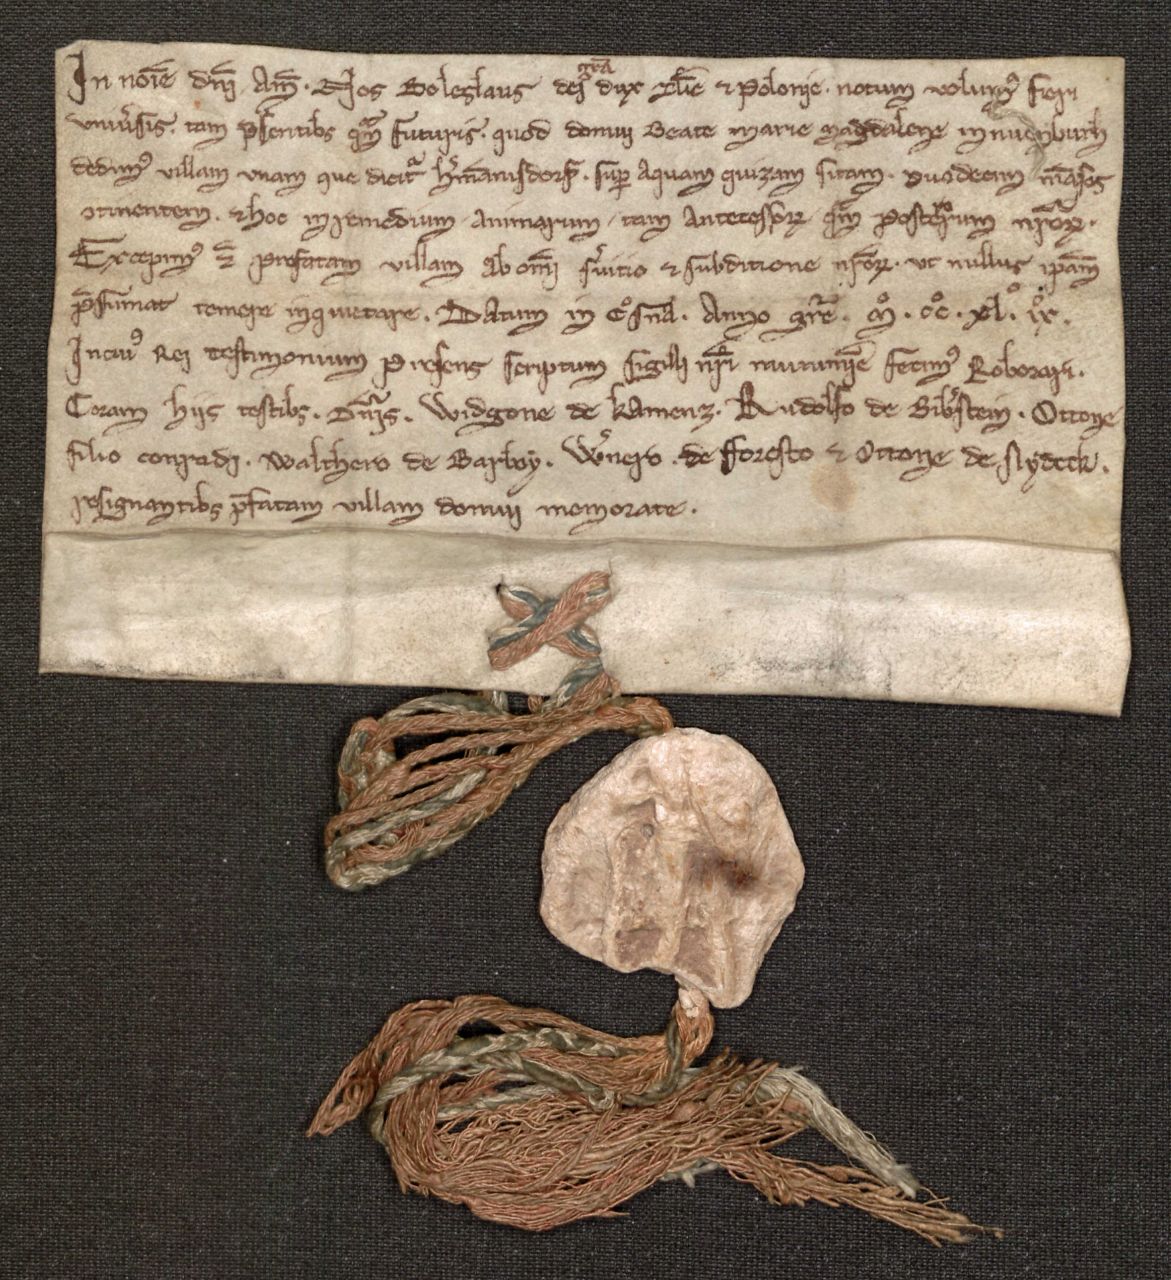 In noīe dn̄i Am̄. Nos Boleslaus dei gr̄a dux zl̄ie & Polonie. notum volum᷒ fieri
vniu̓sis. tam p̄sentibs qm̄ futuris. quod domui Beate marie magdalene in nuenburh
dedim᷒ villam vnam que dicit᷑ h̓mānisdorf. sup̱ Aquam quizam sitam. duodecim māsos
ↄtinentem. & hoc in remedium Animarum tam Antecessoꝝ qm̄ posteriorum nr̄oꝝ.
Excepim᷒ prefatam villam ab om̄i s̓uitio & subditione nr̄oꝝ. ut nullus ip̄am
p̄sumat temere inquietare. Datum in Anno gr̄e. m̊. cc̊. xl̊. ix̊.
In cui᷒ Rei testimonium presens scriptum sigilli nr̄i munimīe fecim᷒ Roborari.
Coram hiis testibs. Dn̄is. Widgone de kamenz. Rudolfo de Bib̓stein. Ottone
filio conradi. Walthero de Barboy. W̓nero de fforesto & Ottone de slydek.
resignantibs p̄fatam villam domui memorate.